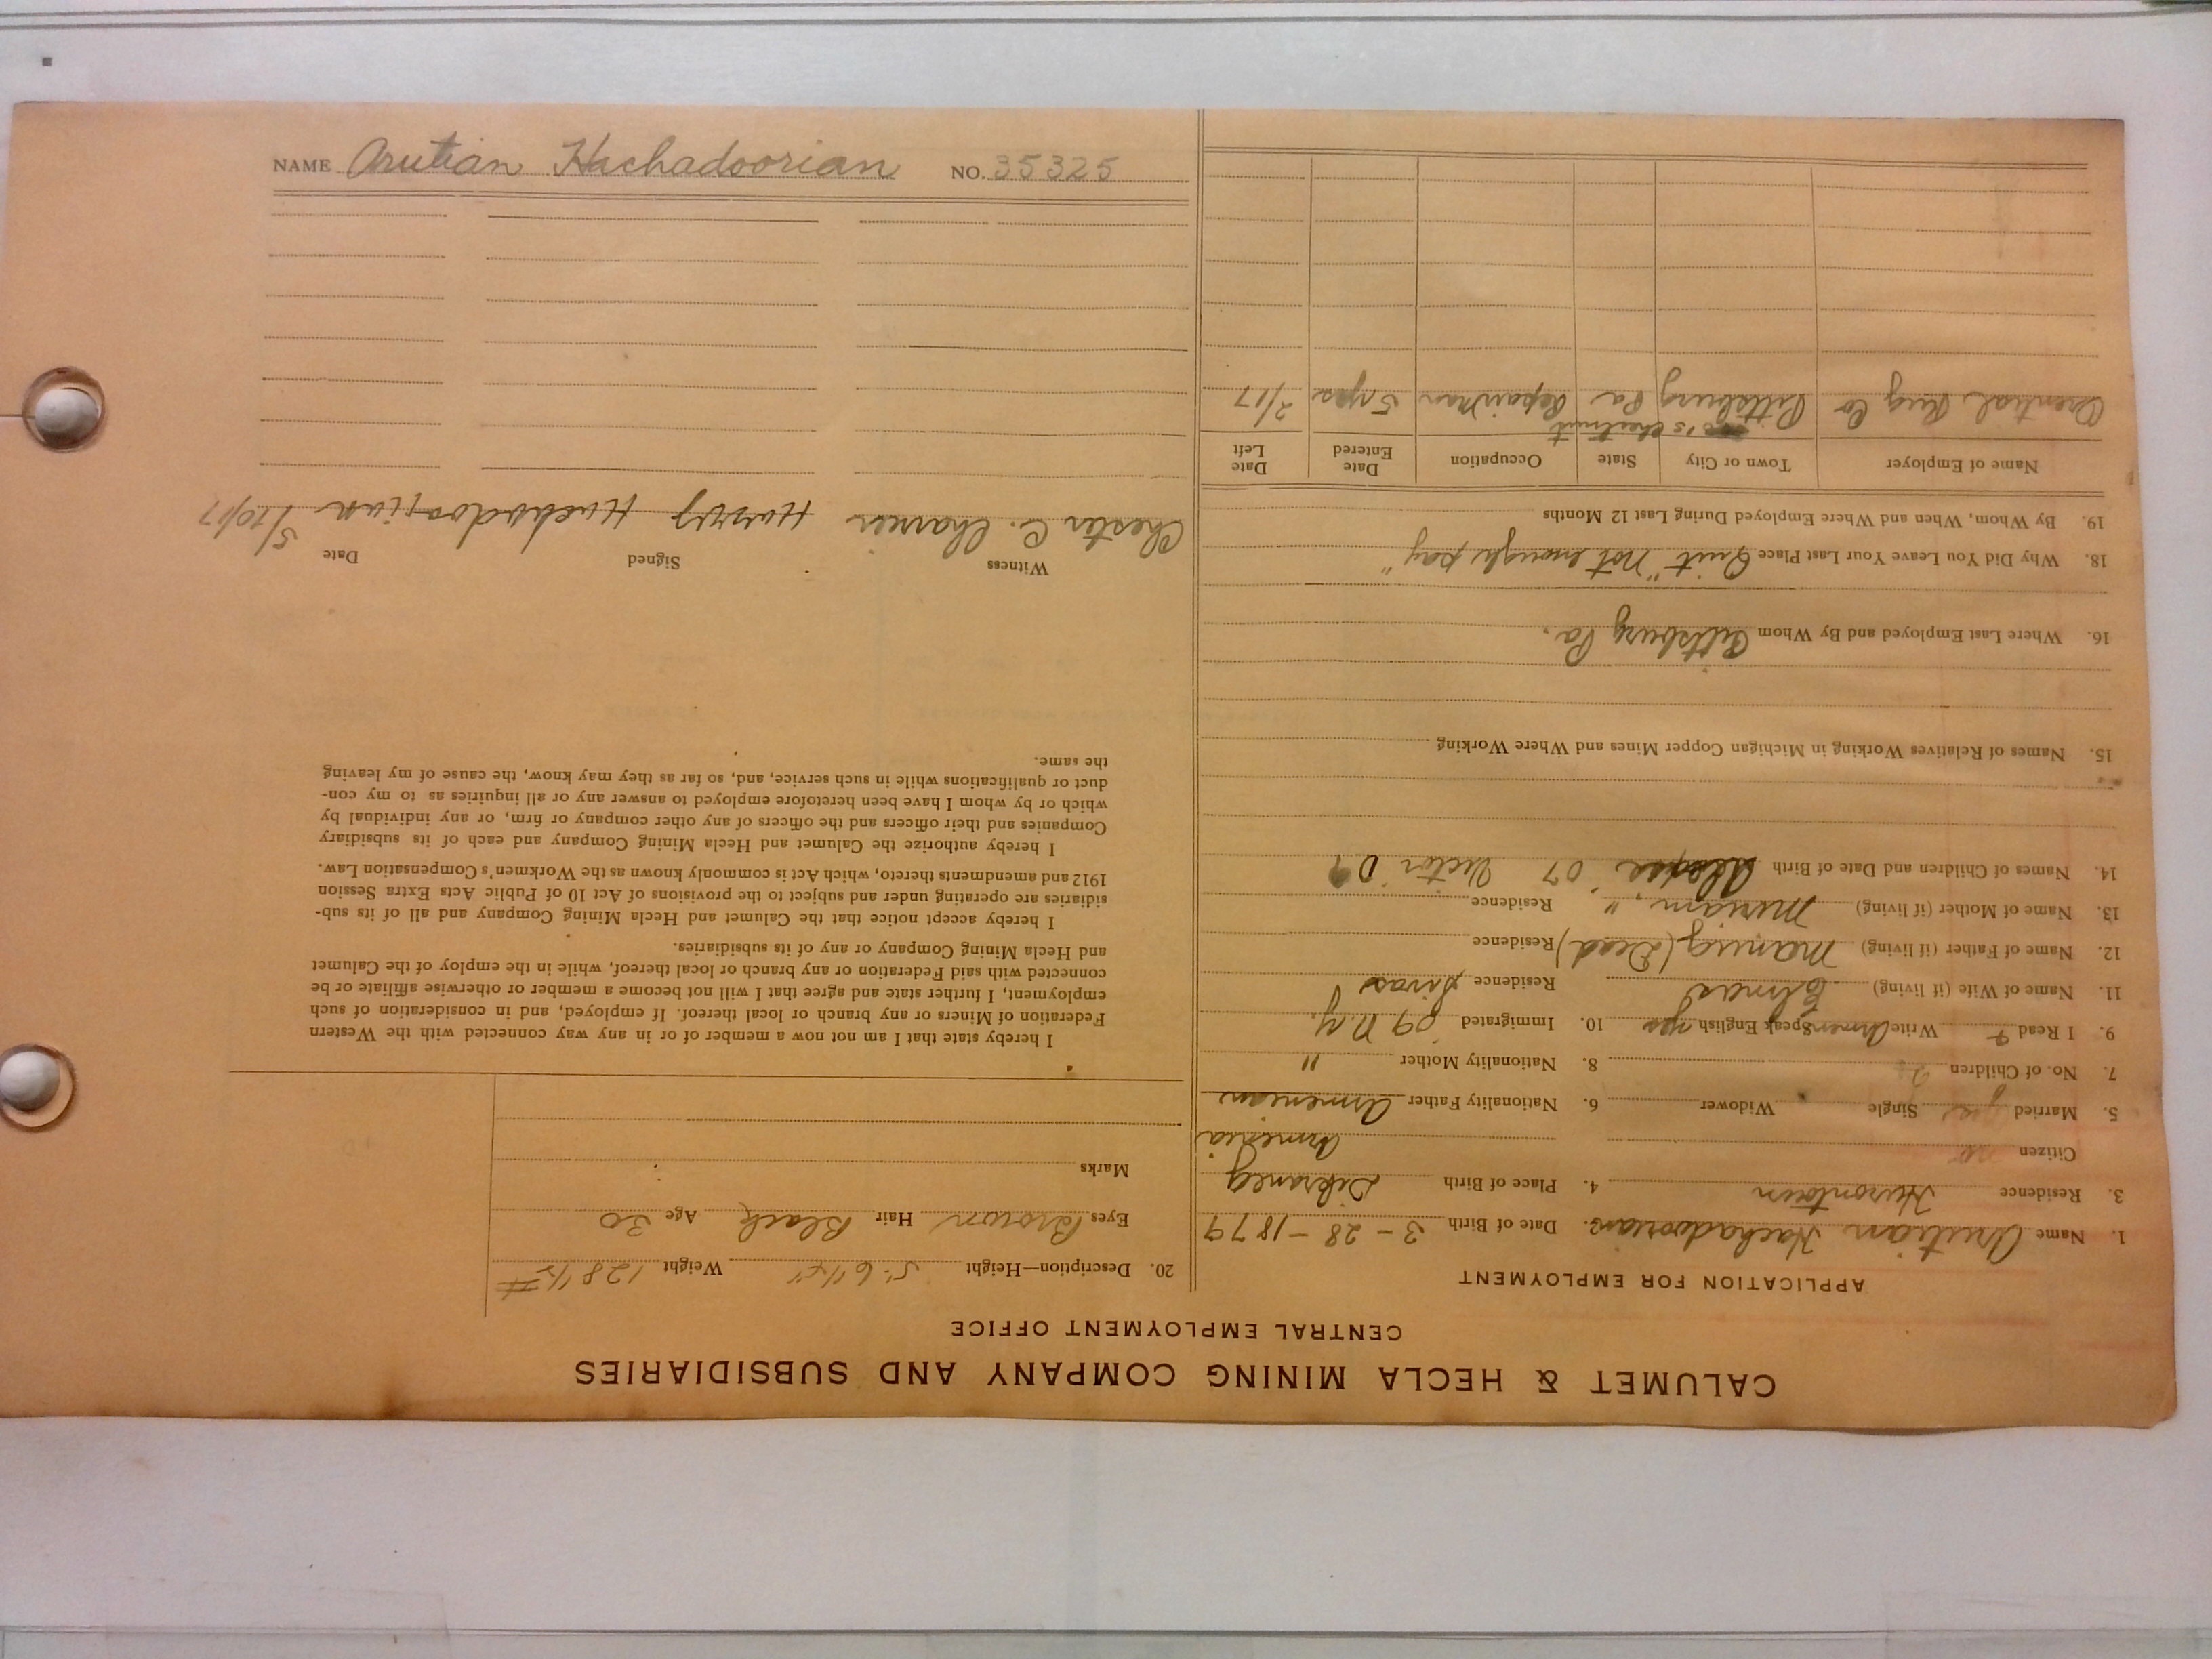 NAME Arutian Hachadoorian NO. 35325
CALUMET & HECLA MINING COMPANY AND SUBSIDIARIES
CENTRAL EMPLOYMENT OFFICE
APPLICATION FOR EMPLOYMENT
1. Name Arutian Hachadoorian 2. Date of Birth 3-28-1879
3. Residence Hurontown 4. Place of Birth
Citizen no Armenia
5. Married yes Single Widower 6. Nationality Father Armenian
7. No. of Children 2 8. Nationality Mother "
9. I Read & Write Armen Speak English yes 10. Immigrated '09 N.Y.
11. Name of Wife (if living) Elmas Residence Sivas
12. Name of Father (if living) (Dead) Residence
13. Name of Mother (if living) Meriam " Residence
14. Names of Children and Date of Birth '07 Victor '09
15. Names of Relatives Working in Michigan Copper Mines and Where Working
16. Where Last Employed and By Whom Pittsburg Pa.
18. Why Did You Leave Your Last Place Quit "not enough pay"
19. By Whom, When and Where Employed During Last 12 Months
Name of Employer Town or City State Occupation Date Entered Date Left
Orential Rug Co Pittsburg Pa Repairman 5 yrs 2/17
20. Description—Height 5'-6 1/2" Weight 128 1/2 #
Eyes Brown Hair Black Age 30
Marks
I hereby state that I am not now a member of or in any way connected with the Western
Federation of Miners or any branch or local thereof. If employed, and in consideration of such
employment, I further state and agree that I will not become a member or otherwise affiliate or be
connected with said Federation or any branch or local thereof, while in the employ of the Calumet
and Hecla Mining Company or any of its subsidiaries.
I hereby accept notice that the Calumet and Hecla Mining Company and all of its sub-
sidiaries are operating under and subject to the provisions of Act 10 of Public Acts Extra Session
1912 and amendments thereto, which Act is commonly known as the Workmen's Compensation Law.
I hereby authorize the Calumet and Hecla Mining Company and each of its subsidiary
Companies and their officers and the officers of any other company or firm, or any individual by
which or by whom I have been heretofore employed to answer any or all inquiries as to my con-
duct or qualifications while in such service, and, so far as they may know, the cause of my leaving
the same.
Witness Signed Date
Chester C. Harry Hachadoorian 5/10/17